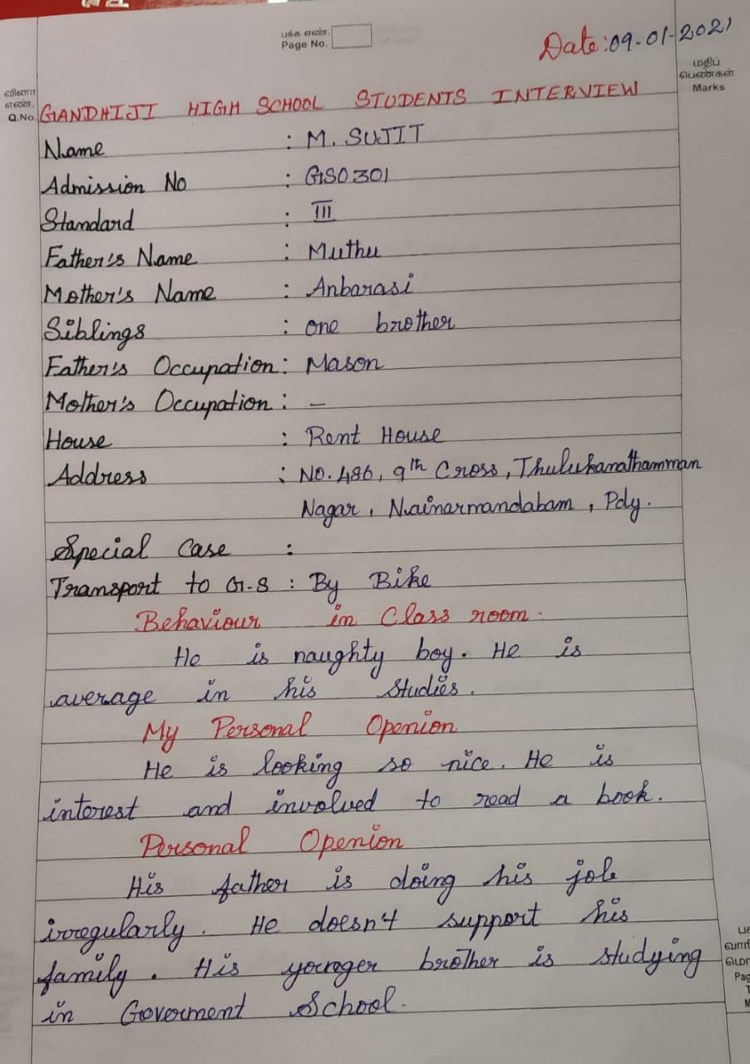 பக்க எண்.
Page No.
Date:09-01-2021
வினா
எண்.
Q.No.
மதிப்
பெண்கள்
Marks
GANDHIJI HIGH SCHOOL STUDENTS INTERVIEW
Name : M. SUJIT
Admission No : GS0301
Standard : III
Father's Name : Muthu
Mother's Name : Anbarasi
Siblings : one brother
Father's Occupation : Mason
Mother's Occupation : –
House : Rent House
Address : No. 486, 9th Cross, Thulukanathamman
Nagar, Nainarmandabam, Pdy.
Special Case :
Transport to G.S : By Bike
Behaviour in Class room.
He is naughty boy. He is
average in his studies.
My Personal Openion
He is looking so nice. He is
interest and involved to read a book.
Personal Openion
His father is doing his job
irregularly. He doesn't support his
family. His younger brother is studying
in Goverment School.